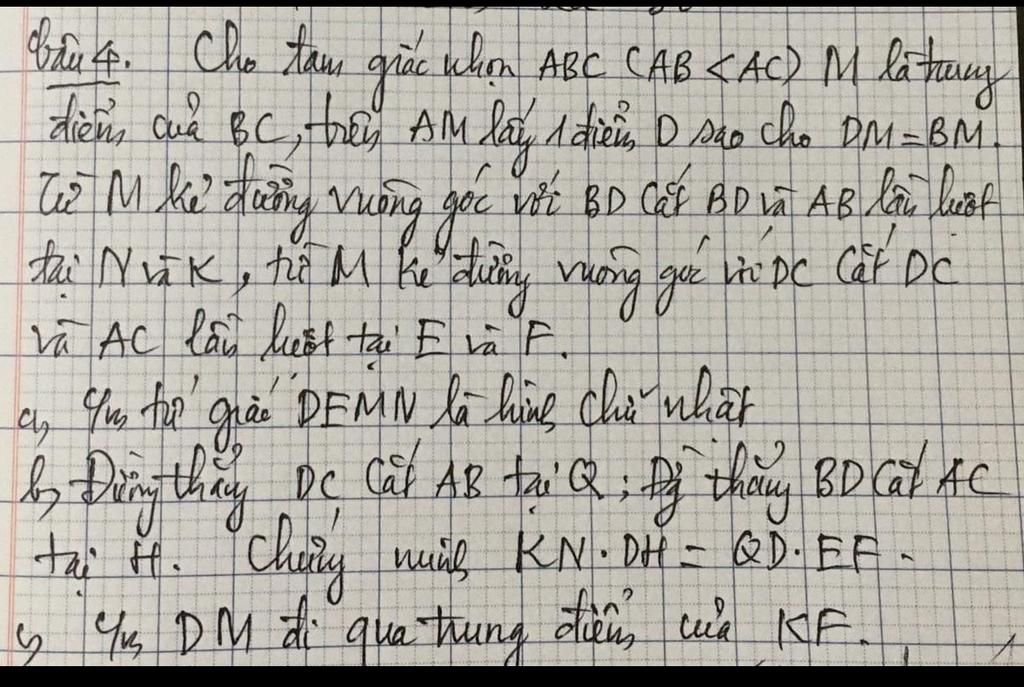 Câu 4. Cho tam giác nhọn ABC (AB < AC) M là trung
điểm của BC, trên AM lấy 1 điểm D sao cho DM = BM.
Từ M kẻ đường vuông góc với BD cắt BD và AB lần lượt
tại N và K, từ M kẻ đường vuông góc với DC cắt DC
và AC lần lượt tại E và F.
a, Cm tứ giác DEMN là hình chữ nhật
b, Đường thẳng DC cắt AB tại Q; Đg thẳng BD cắt AC
tại H. Chứng minh KN.DH = QD.EF.
c, Cm DM đi qua trung điểm của KF.